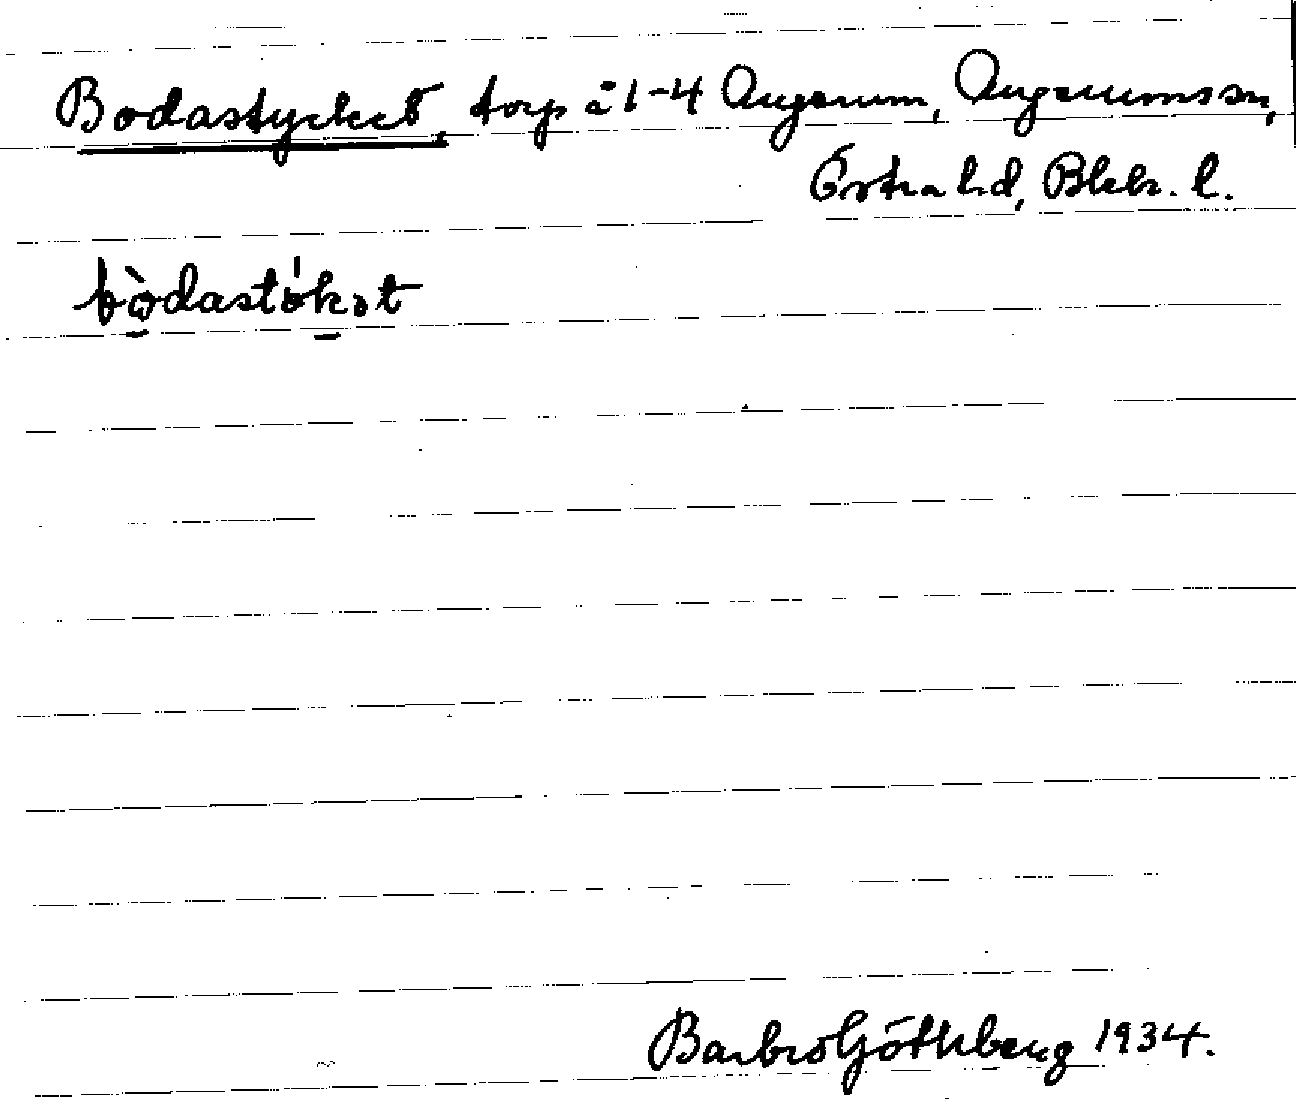 Bodastycket, torp å 1-4 Augerum, Augerums sn,
Östra hd, Blek. l.
bòdastókət
Barbro Göthberg 1934.